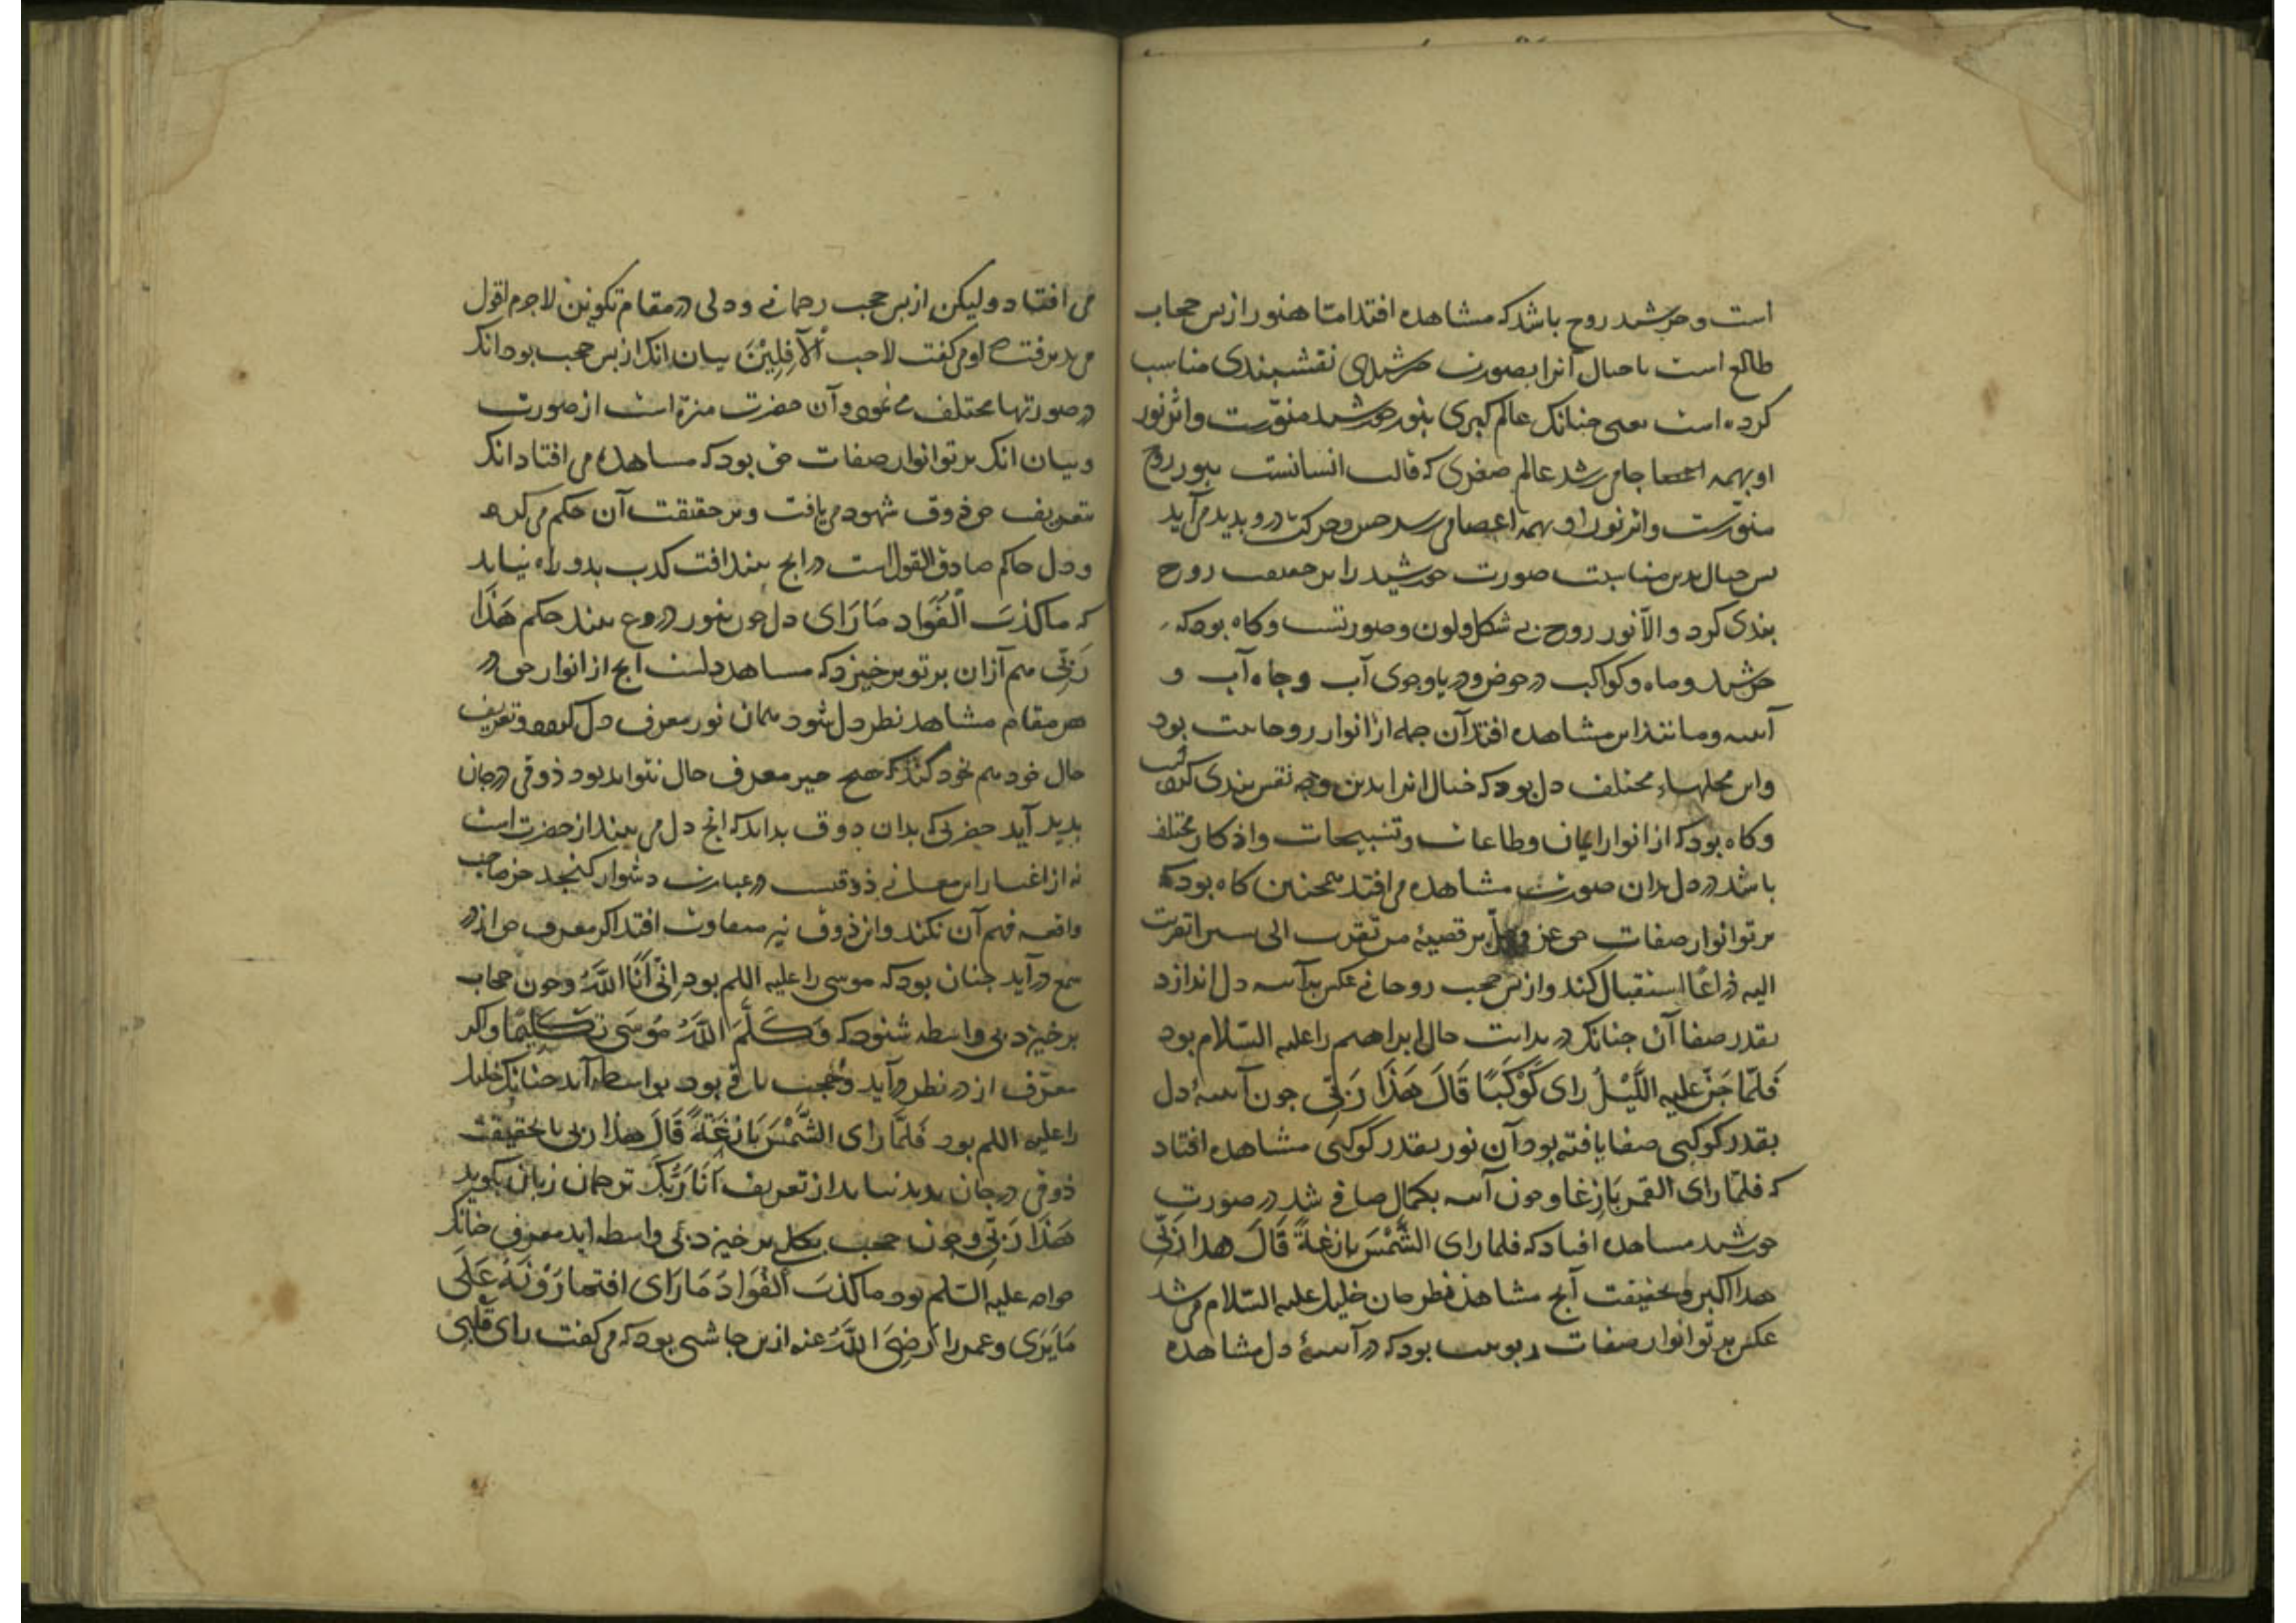 است و خرشید روح باشد که مشاهده افتد اما هنوز از بس حجاب
طالع است تا خیال آنرا بصورت خرشیدی نقشبندی مناسب
کرده است یعنی جنانک عالم کبری بنور خورشید منورست و اثر نور
او بهمه اعضا جا می رسد عالم صغری که قالب انسانست بنور روح
منورست و اثر نور او بهمه اعضا می رسد حس و حرکت در و بدید می آید
بس خیال بدین مناسبت صورت خورشید را بر حقیقت روح
بندی کرد و الا نور روح بی شکل و لون و صورتست و کاه بود که
خرشید و ماه و کواکب در حوض و دریا و جوی آب و جاه آب و
آینه و مانند این مشاهده افتد آن جمله از انوار روحانیت بود
و این محلهاء مختلف دل بود که خیال انرا بدین وجه نقس بندی کرده
و کاه بود که از انوار ایمان و طاعات و تسبیحات و اذکار مختلف
باشد در دل بدان صورت مشاهده می افتد همجنین کاه بود که
برتو انوار صفات حق عز و جل بر قضیهٔ من تقرب الی شبرا تقربت
الیه ذراعًا استقبال کند و از بس حجب روحانی عکس بر آینه دل اندازد
بقدر صفا آن جنانک در بدایت حال ابراهیم را علیه السّلام بود
فَلَمّا جَنَّ علیه اللَّیْلُ رای کَوْکَبًا قَالَ هَذَا رَبّی جون آینهٔ دل
بقدر کوکبی صفا یافته بود آن نور بقدر کوکبی مشاهده افتاد
که فلمّا رای القمر بَازِغا و جون آینه بکمال صافی شد در صورت
خورشید مساهده افتاد که فلما رای الشَّمْسَ بازغةً قَالَ هذا رَبّی
هذا اکبر و بحقیقت آنج مشاهد نظر جان خلیل علیه السّلام می شد
عکس برتو انوار صفات ربوبیت بود که در آینهٔ دل مشاهده
می افتاد و لیکن از بس حجب رحمانی و دلی در مقام تکوین لاجرم افول
می بذیرفت و او می کفت لا احب الآفِلِیْنَ بیان انک از بس حجب بود انک
در صورتها مختلف می نمود و آن حضرت منزه است از صورت
و بیان انک برتو انوار صفات حق بود که مساهده می افتاد انک
بتعریف حق ذوق شهود می یافت و بر حقیقت آن حکم می کرد
و دل حاکم صادق القول است در انج بیند افت کذب بدو راه نیابد
که ما کذبَ الْفُوَاد مَا رَای دل جون بنور دروع بیند حکم هَذَا
رَبّی هم آزان برتو برخیزد که مساهد دلست آنج از انوار حق در
هر مقام مشاهد نظر دل شود همان نور معرف دل کردد و تعریف
حال خود هم خود کند که هیج جیز معرف حال نتواند بود ذوقی در جان
بدید آید حضرتی که بدان ذوق بداند که انج دل می بیند از حضرت است
نه از اغیار این معانی ذوقیست در عبارت دشوار کنجد جز صاحب
واقعه فهم آن نکند و این ذوق نیز متفاوت افتد اکر معرف حق از در
سمع در آید جنان بود که موسی را علیه اللم بود اِنّی اَنَا اللَّهُ و جون حجاب
برخیزد بی واسطه شنود که وَکَلَّمَ اللَّهُ مُوسَی تَکْلِیمًا و اکر
معرف از در نظر در آید و حجب باقی بود بواسطه آید جنانک خلیل
را علیه اللم بود فَلَمَّا رَای الشَّمْسَ بَازِغَةً قَالَ هذا ربی تا بحقیقت
ذوقی در جان بدید نیاید از تعریف اَنَا رَبُّکَ ترجمان زبان نکوید
هَذَا رَبّی و جون حجب بکل برخیزد بی واسطه اید معرفی جنانک
خواجه علیه السّلم بود ما کذبَ الْفُوَادُ مَا رَای افتمارَوْنَهُ عَلَی
مَا یَرَی و عمر را رَضِیَ اللَّهُ عنه ازین جاشنی بود که می کفت رای قَلْبِی